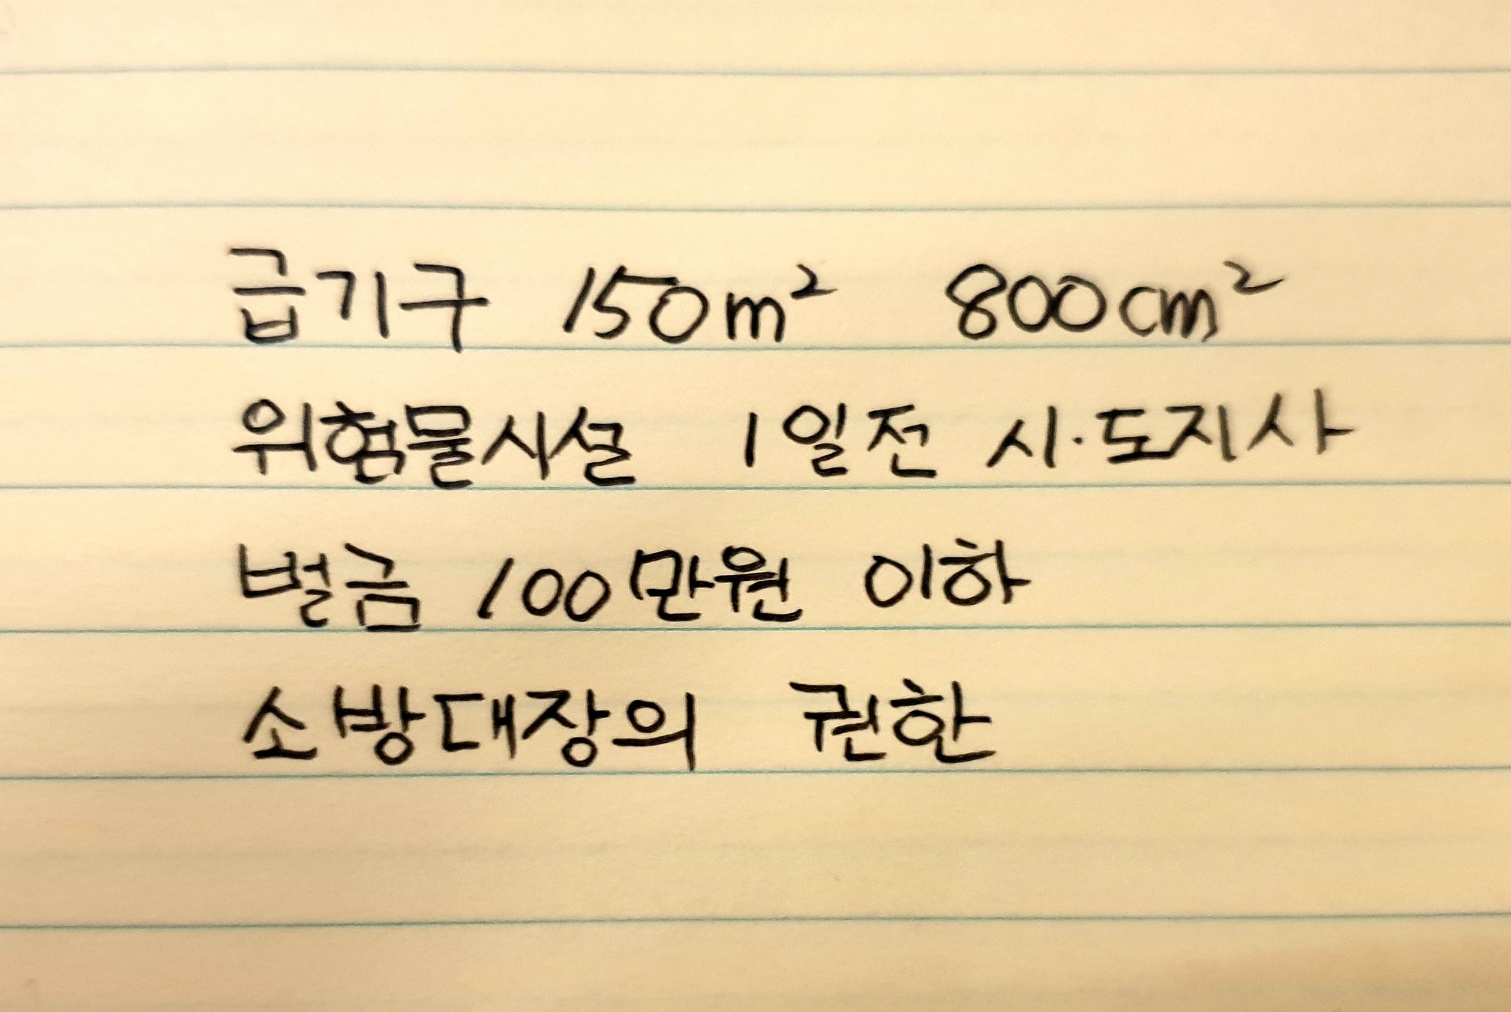 급기구 150m² 800cm²
위험물시설 1일전 시·도지사
벌금 100만원 이하
소방대장의 권한